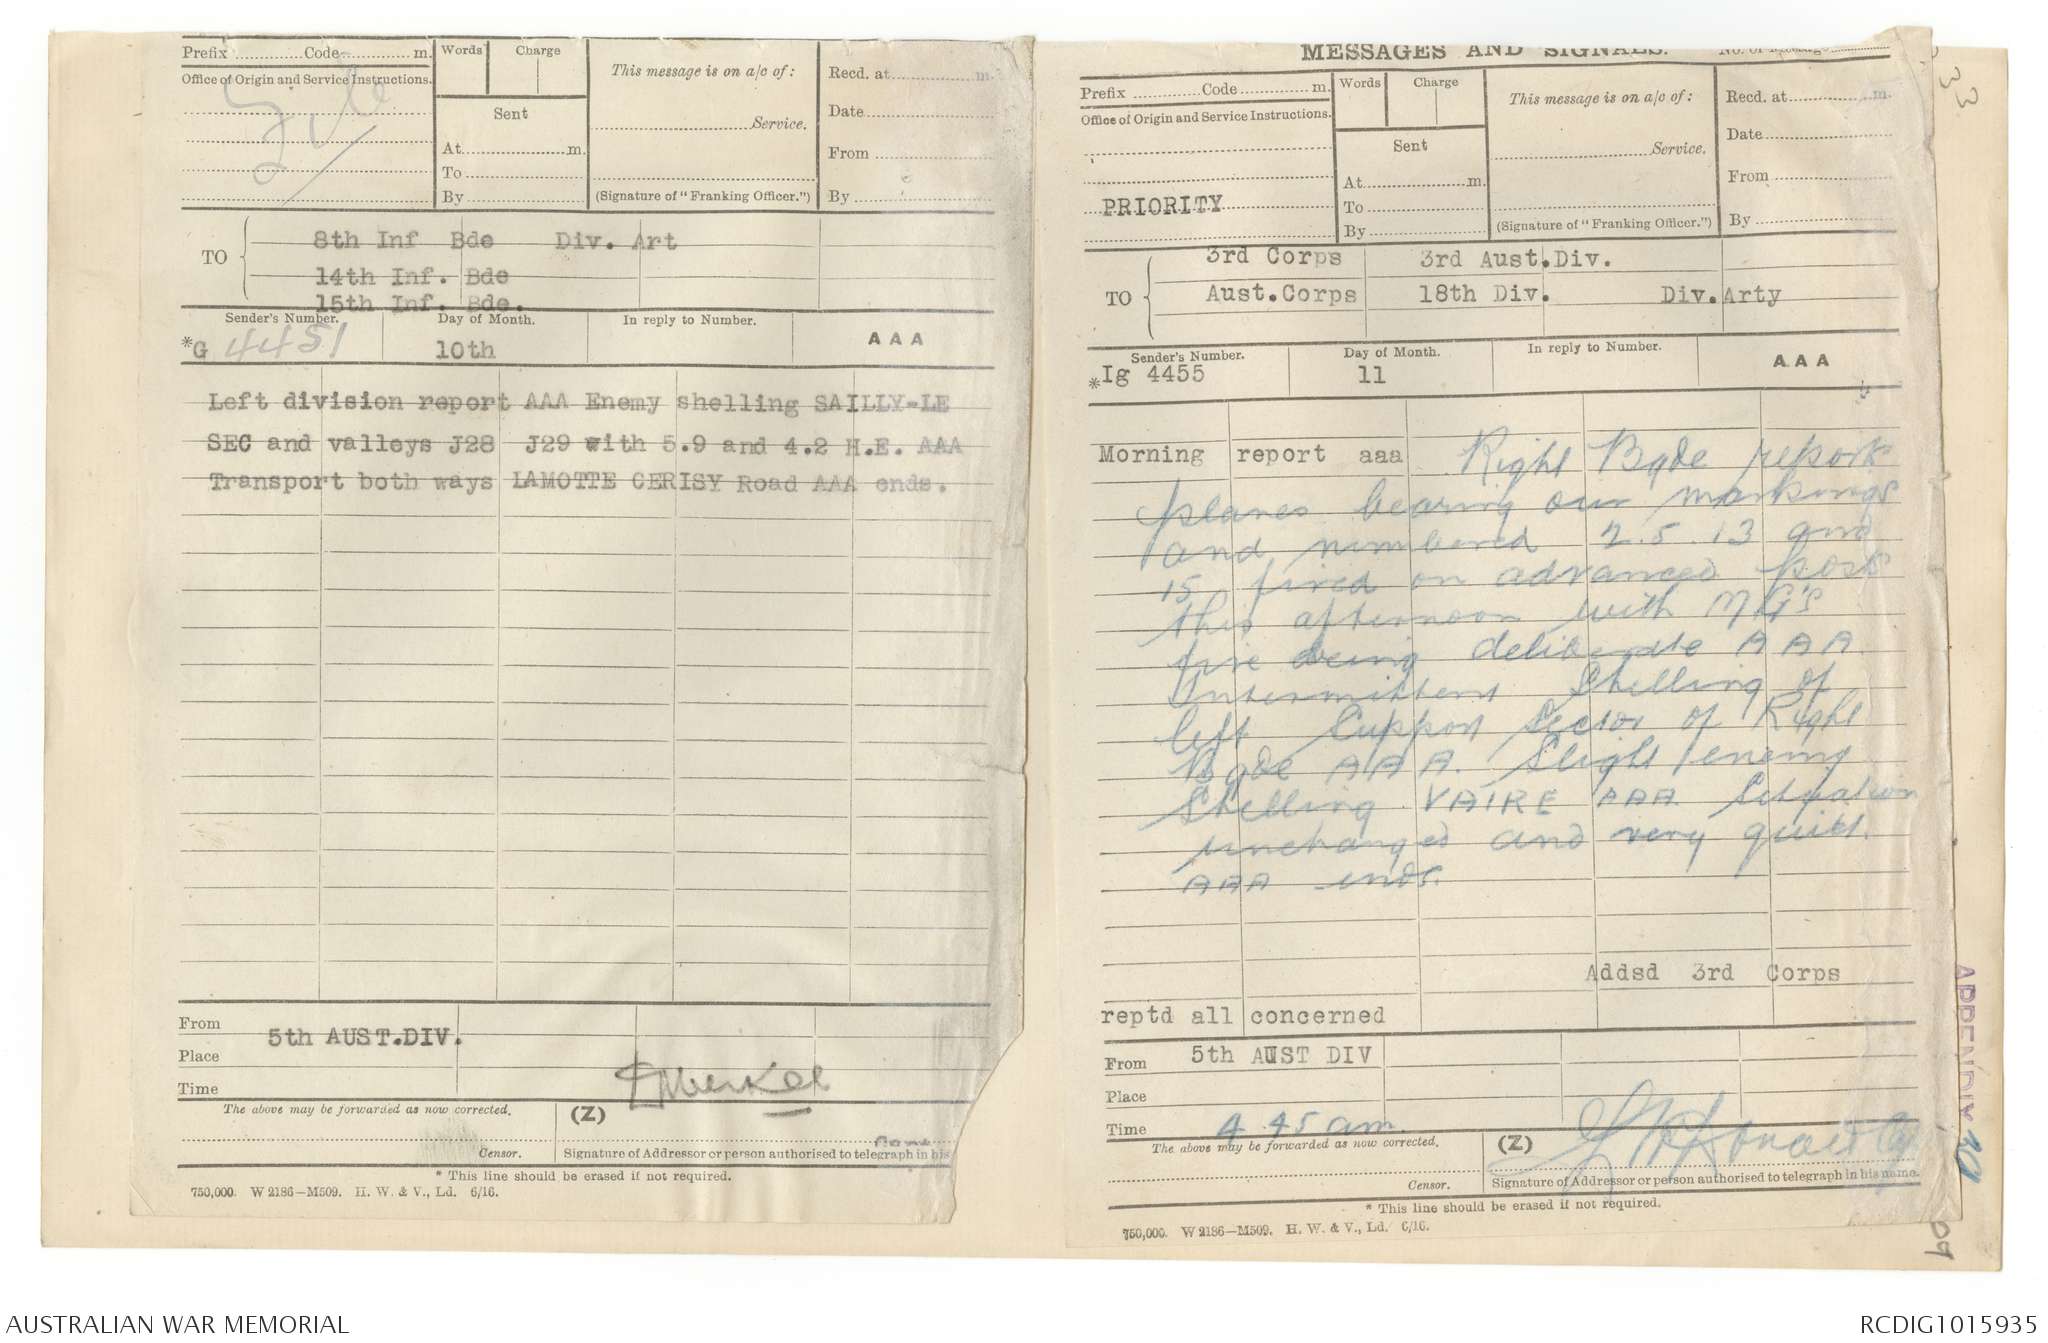 Prefix Code m.
Words Charge
This message is on a/c of:
Recd. at m.
Office of Origin and Service Instructions.
Sent
Service.
Date
At m.
From
To
By
(Signature of "Franking Officer.")
By
TO
8th Inf Bde Div. Art
14th Inf. Bde
15th Inf. Bde.
Sender's Number. Day of Month. In reply to Number.
AAA
*G 4451 10th
Left division report AAA Enemy shelling SAILLY-LE
SEC and valleys J28 J29 with 5.9 and 4.2 H.E. AAA
Transport both ways LAMOTTE CERISY Road AAA ends.
From
5th AUST.DIV.
Place
Time
The above may be forwarded as now corrected.
(Z)
Capt
Censor.
Signature of Addressor or person authorised to telegraph in his
* This line should be erased if not required.
750,000. W 2186–M509. H. W. & V., Ld. 6/16.
MESSAGES AND SIGNALS.
No. of Message
33
Prefix Code m.
Words Charge
This message is on a/c of:
Recd. at m.
Office of Origin and Service Instructions.
Sent
Service.
Date
At m.
From
PRIORITY
To
By
(Signature of "Franking Officer.")
By
TO
3rd Corps 3rd Aust.Div.
Aust.Corps 18th Div. Div.Arty
Sender's Number. Day of Month. In reply to Number.
AAA
*Ig 4455 11
Morning report aaa Right Bgde report
planes bearing our markings
and numbered 2.5.13 and
15 fired on advanced posts
this afternoon with MG's
fire being deliberate AAA.
Intermittent Shelling of
left Support Sector of Right
Bgde AAA. Slight enemy
Shelling VAIRE AAA. Situation
unchanged and very quiet.
AAA ends.
Addsd 3rd Corps
reptd all concerned
From
5th AUST DIV
Place
Time
4.45 am.
The above may be forwarded as now corrected.
(Z)
Censor.
Signature of Addressor or person authorised to telegraph in his name.
* This line should be erased if not required.
750,000. W 2186–M509. H. W. & V., Ld. 6/16.
APPENDIX
AUSTRALIAN WAR MEMORIAL
RCDIG1015935